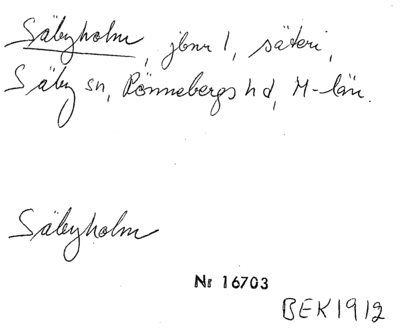 Säbyholm, jbnr 1, säteri,
Säby sn, Rönnebergs hd, M-län.
Säbyholm
Nr 16703
BEK1912